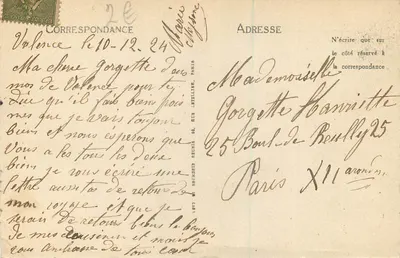 CORRESPONDANCE
2€
Marie
ADRESSE
N'écrite que sur
le côté réservé à
la correspondance
Valence le 10-12.24
Ma chère Gorgette deux
mos de Valence pour te
dire qu'il fait bien
mes que je vais toujours
bien et nous esperons que
Vous a les tous les deux
bien je vous écriré une
lettre aussitos de retour de
mon voyage et que je
serais de retour
de mes cousines et mois je
vous de tout
Mademoiselle
Gorgette Hanriette
25 Boul. de Reully 25
Paris XII arond.